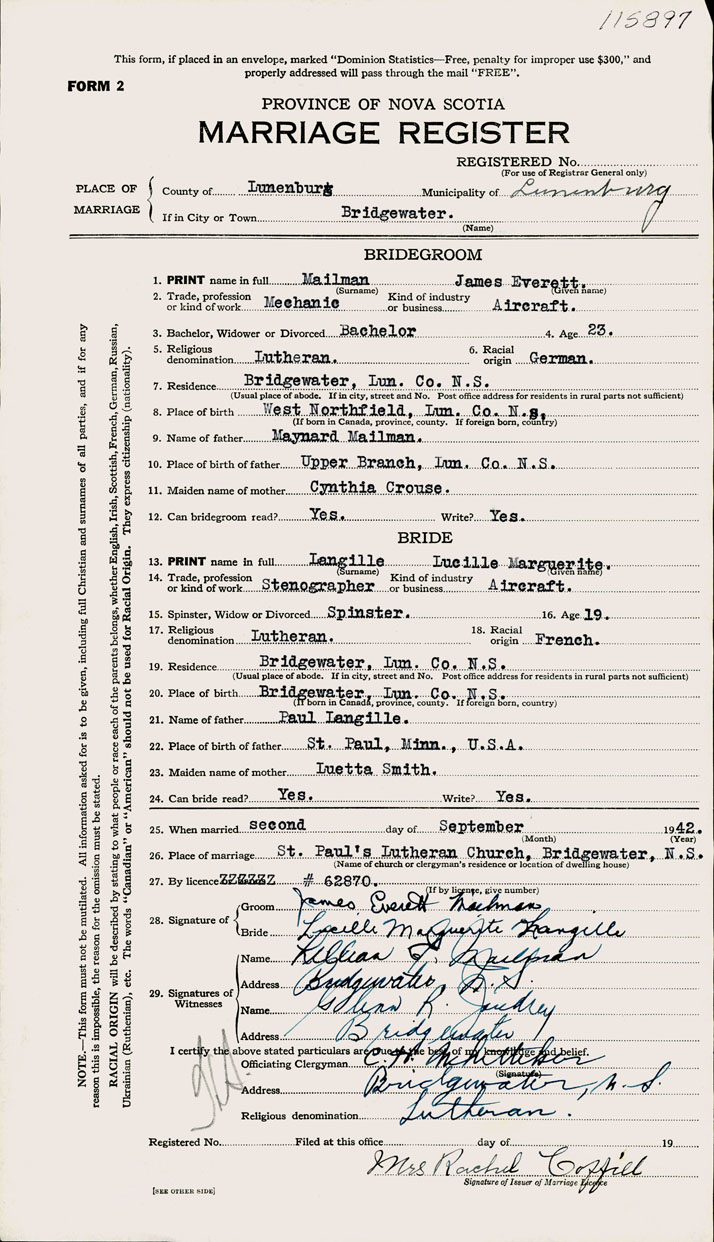 115897
This form, if placed in an envelope, marked "Dominion Statistics—Free, penalty for improper use $300," and
properly addressed will pass through the mail "FREE".
FORM 2
PROVINCE OF NOVA SCOTIA
MARRIAGE REGISTER
REGISTERED No.
(For use of Registrar General only)
PLACE OF MARRIAGE
County of Lunenburg Municipality of Lunenburg
If in City or Town Bridgewater.
(Name)
BRIDEGROOM
1. PRINT name in full Mailman James Everett.
(Surname) (Given name)
2. Trade, profession or kind of work Mechanic Kind of industry or business Aircraft.
3. Bachelor, Widower or Divorced Bachelor 4. Age 23.
5. Religious denomination Lutheran. 6. Racial origin German.
7. Residence Bridgewater, Lun. Co. N.S.
(Usual place of abode. If in city, street and No. Post office address for residents in rural parts not sufficient)
8. Place of birth West Northfield, Lun. Co. N.S.
(If born in Canada, province, county. If foreign born, country)
9. Name of father Maynard Mailman.
10. Place of birth of father Upper Branch, Lun. Co. N.S.
11. Maiden name of mother Cynthia Crouse.
12. Can bridegroom read? Yes. Write? Yes.
BRIDE
13. PRINT name in full Langille Lucille Marguerite.
(Surname) (Given name)
14. Trade, profession or kind of work Stenographer Kind of industry or business Aircraft.
15. Spinster, Widow or Divorced Spinster. 16. Age 19.
17. Religious denomination Lutheran. 18. Racial origin French.
19. Residence Bridgewater, Lun. Co. N.S.
(Usual place of abode. If in city, street and No. Post office address for residents in rural parts not sufficient)
20. Place of birth Bridgewater, Lun. Co. N.S.
(If born in Canada, province, county. If foreign born, country)
21. Name of father Paul Langille.
22. Place of birth of father St. Paul, Minn., U.S.A.
23. Maiden name of mother Luetta Smith.
24. Can bride read? Yes. Write? Yes.
25. When married second day of September 1942.
(Month) (Year)
26. Place of marriage St. Paul's Lutheran Church, Bridgewater, N.S.
(Name of church or clergyman's residence or location of dwelling house)
27. By licence ZZZZZZ # 62870.
(If by licence, give number)
28. Signature of
Groom James Everett Mailman
Bride Lucille Marguerite Langille
29. Signatures of Witnesses
Name Mailman
Address Bridgewater, N.S.
Name R.
Address Bridgewater
I certify the above stated particulars are true to the best of my knowledge and belief.
Officiating Clergyman
(Signature)
Address Bridgewater, N.S.
Religious denomination Lutheran.
Registered No. Filed at this office day of 19
Mrs Rachel Coffill
Signature of Issuer of Marriage Licence
[SEE OTHER SIDE]
NOTE.—This form must not be mutilated. All information asked for is to be given, including full Christian and surnames of all parties, and if for any
reason this is impossible, the reason for the omission must be stated.
RACIAL ORIGIN will be described by stating to what people or race each of the parents belongs, whether English, Irish, Scottish, French, German, Russian,
Ukrainian (Ruthenian), etc. The words "Canadian" or "American" should not be used for Racial Origin. They express citizenship (nationality).